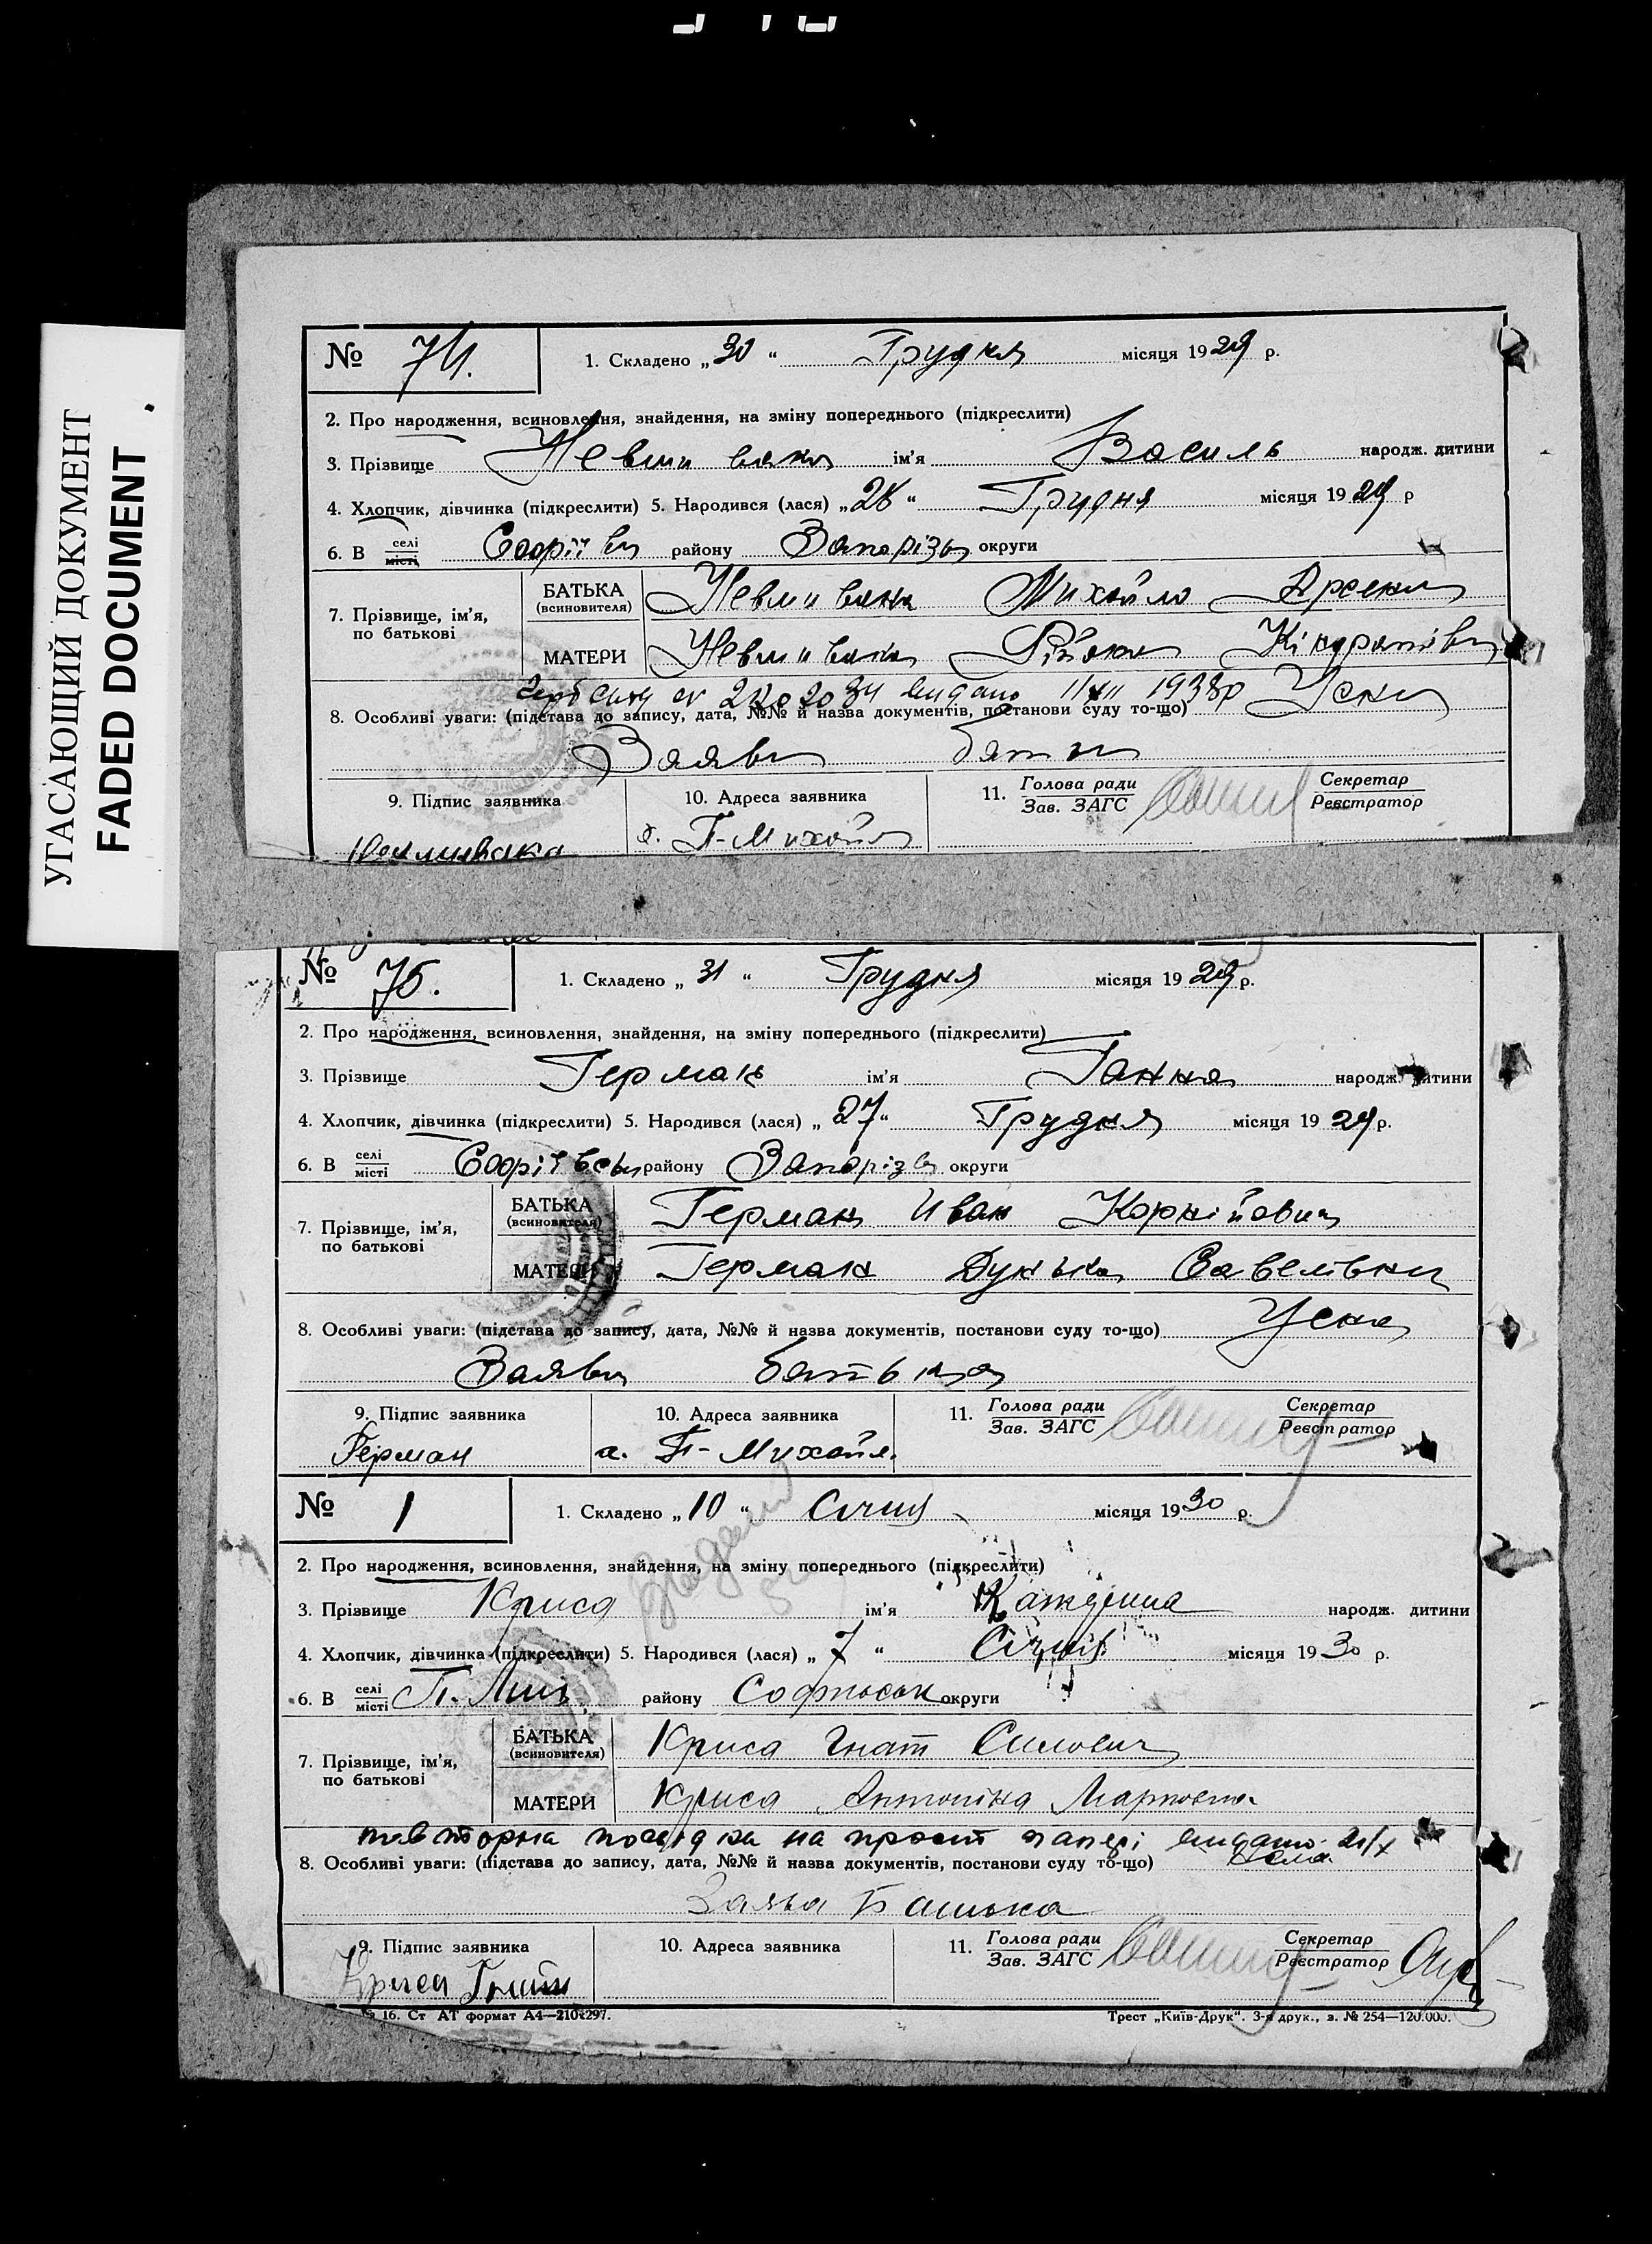 УГАСАЮЩИЙ ДОКУМЕНТ
FADED DOCUMENT
№ 74. 1. Складено „30“ Грудня місяця 1929 р.
2. Про народження, всиновлення, знайдення, на зміну попереднього (підкреслити)
3. Прізвище ім'я Василь народж. дитини
4. Хлопчик, дівчинка (підкреслити) 5. Народився (лася) „28“ Грудня місяця 1929 р
6. В селі міста району округи
7. Прізвище, ім'я, по батькові
БАТЬКА (всиновителя) Михайло
МАТЕРИ
видано 1938р
8. Особливі уваги: (підстава до запису, дата, №№ й назва документів, постанови суду то-що) Усна
Заява
9. Підпис заявника 10. Адреса заявника 11. Голова ради Зав. ЗАГС Секретар Реєстратор
х. П-Михайл
№ 75. 1. Складено „31“ Грудня місяця 1929 р.
2. Про народження, всиновлення, знайдення, на зміну попереднього (підкреслити)
3. Прізвище Герман ім'я Ганна народж. дитини
4. Хлопчик, дівчинка (підкреслити) 5. Народився (лася) „27“ Грудня місяця 1929 р.
6. В селі місті району округи
7. Прізвище, ім'я, по батькові
БАТЬКА (всиновителя) Герман Иван Корнійович
МАТЕРИ Герман
8. Особливі уваги: (підстава до запису, дата, №№ й назва документів, постанови суду то-що) Усна
Заява батька
9. Підпис заявника 10. Адреса заявника 11. Голова ради Зав. ЗАГС Секретар Реєстратор
Герман х. П-Михайл.
№ 1 1. Складено „10“ Січня місяця 1930 р.
2. Про народження, всиновлення, знайдення, на зміну попереднього (підкреслити)
3. Прізвище Криса ім'я народж. дитини
4. Хлопчик, дівчинка (підкреслити) 5. Народився (лася) „7“ Січня місяця 1930 р.
6. В селі місті району округи
7. Прізвище, ім'я, по батькові
БАТЬКА (всиновителя) Криса Гнат Силович
МАТЕРИ Криса Антоніна
повторна посвідка на прост папері видано
8. Особливі уваги: (підстава до запису, дата, №№ й назва документів, постанови суду то-що)
Заява Батька
9. Підпис заявника 10. Адреса заявника 11. Голова ради Зав. ЗАГС Секретар Реєстратор
Криса Гнат
16. Ст АТ формат А4—210х297. Трест „Київ-Друк“. 3-я друк., з. № 254—120.000.